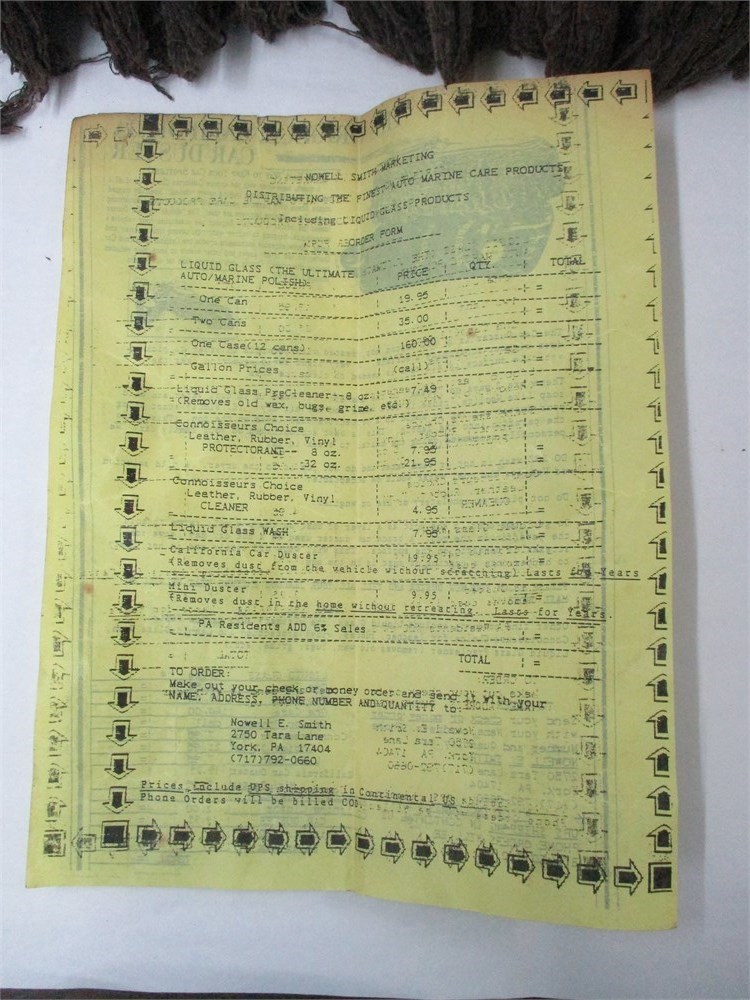 NOWELL SMITH MARKETING
DISTRIBUTING THE FINEST AUTO MARINE CARE PRODUCTS
including LIQUID GLASS PRODUCTS
REORDER FORM
LIQUID GLASS (THE ULTIMATE PRICE QTY. TOTAL
AUTO/MARINE POLISH):
One Can 19.95 =
Two Cans 35.00 =
One Case(12 cans) 160.00 =
Gallon Prices (call) =
Liquid Glass PreCleaner--8 oz. 7.49 =
(Removes old wax, bugs, grime, etc.)
Connoisseurs Choice
Leather, Rubber, Vinyl
PROTECTORANT-- 8 oz. 7.95 =
32 oz. 21.95 =
Connoisseurs Choice
Leather, Rubber, Vinyl
CLEANER 4.95 =
Liquid Glass WASH 7.95 =
California Car Duster 19.95 =
(Removes dust from the vehicle without scratching) Lasts for Years
Mini Duster 9.95 =
(Removes dust in the home without recreating...Lasts for Years.
PA Residents ADD 6% Sales =
TOTAL =
TO ORDER:
Make out your check or money order and send it with your
NAME, ADDRESS, PHONE NUMBER AND QUANTITY to:
Nowell E. Smith
2750 Tara Lane
York, PA 17404
(717)792-0660
Prices Include UPS shipping in Continental US
Phone Orders will be billed COD.